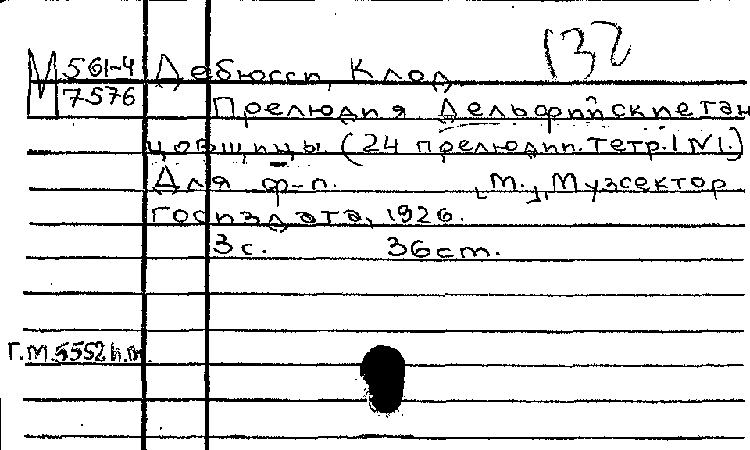 132
М 561-4 Дебюсси, Клод
7576 Прелюдия Дельфийские тан
цовщицы. (24 прелюдии. Тетр. I №1.)
Для ф-п. [М.], Музсектор
Госиздата, 1926.
3 с. 36 cm.
Г.М. 5552